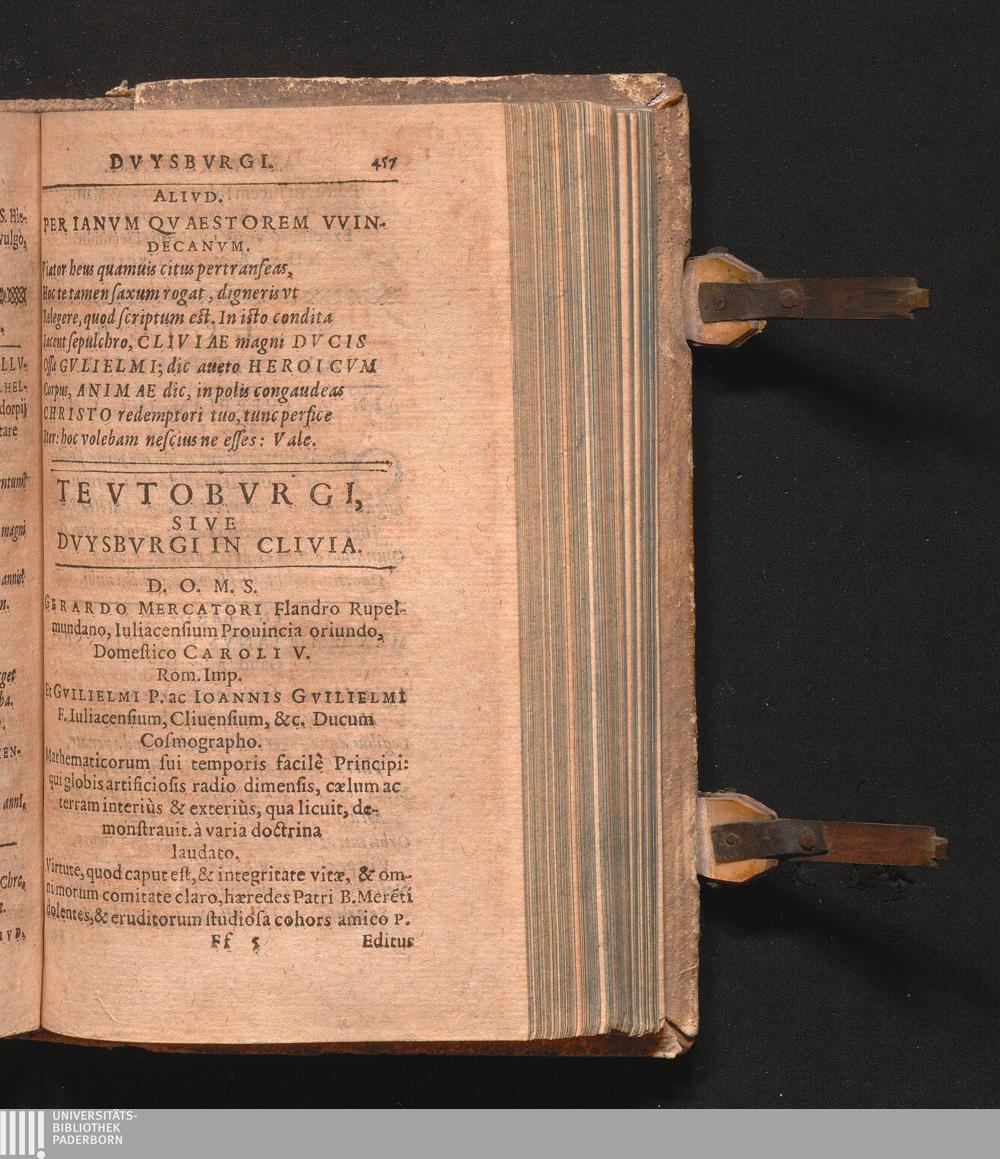 S. Hie-
vulgò,
LLV-
LHEL-
dorpij
tare
magni
EN-
annI,
Chro,
IVP,
DVYSBVRGI. 457
ALIVD.
PER IANVM QVAESTOREM VVIN-
DECANVM.
Viator heus quamuis citus pertranſeas,
Hoc te tamen ſaxum rogat, digneris vt
Relegere, quod ſcriptum eſt. In iſto condita
Iacent ſepulchro, CLIVIAE magni DVCIS
Oſſa GVLIELMI; dic aueto HEROICVM
Corpus, ANIMAE dic, in polis congaudeas
CHRISTO redemptori tuo, tunc perfice
Iter: hoc volebam neſcius ne eſſes: Vale.
TEVTOBVRGI,
SIVE
DVYSBVRGI IN CLIVIA.
D. O. M. S.
GERARDO MERCATORI Flandro Rupel-
mundano, Iuliacenſium Prouincia oriundo,
Domeſtico CAROLI V.
Rom. Imp.
Et GVILIELMI P. ac IOANNIS GVILIELMI
F. Iuliacenſium, Cliuenſium, &c. Ducum
Coſmographo.
Mathematicorum ſui temporis facilè Principi:
qui globis artificioſis radio dimenſis, cælum ac
terram interiùs & exteriùs, qua licuit, de-
monſtrauit. à varia doctrina
laudato.
Virtute, quod caput eſt, & integritate vitæ, & om-
ni morum comitate claro, hæredes Patri B. Merẽti
dolentes, & eruditorum ſtudioſa cohors amico P.
Ff 5 Editus
UNIVERSITÄTS-
BIBLIOTHEK
PADERBORN